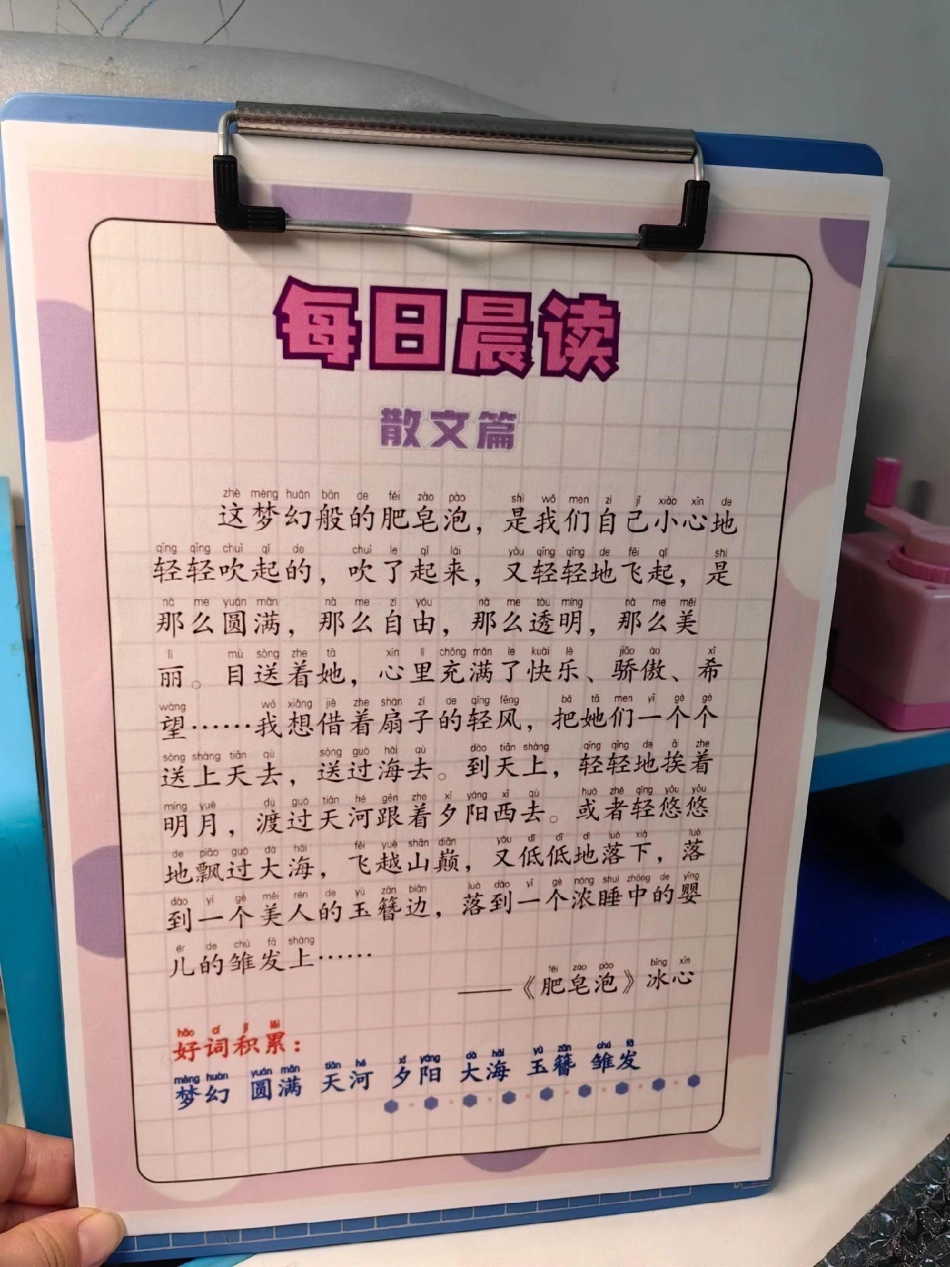 每日晨读
散文篇
zhè mèng huàn bān de féi zào pào shì wǒ men zì jǐ xiǎo xīn de
这梦幻般的肥皂泡，是我们自己小心地
qīng qīng chuī qǐ de chuī le qǐ lái yòu qīng qīng de fēi qǐ shì
轻轻吹起的，吹了起来，又轻轻地飞起，是
nà me yuán mǎn nà me zì yóu nà me tòu míng nà me měi
那么圆满，那么自由，那么透明，那么美
lì mù sòng zhe tā xīn lǐ chōng mǎn le kuài lè jiāo ào xī
丽。目送着她，心里充满了快乐、骄傲、希
wàng wǒ xiǎng jiè zhe shàn zi de qīng fēng bǎ tā men yī gè gè
望……我想借着扇子的轻风，把她们一个个
sòng shàng tiān qù sòng guò hǎi qù dào tiān shàng qīng qīng de āi zhe
送上天去，送过海去。到天上，轻轻地挨着
míng yuè dù guò tiān hé gēn zhe xī yáng xī qù huò zhě qīng yōu yōu
明月，渡过天河跟着夕阳西去。或者轻悠悠
de piāo guò dà hǎi fēi yuè shān diān yòu dī dī de luò xià luò
地飘过大海，飞越山巅，又低低地落下，落
dào yī gè měi rén de yù zān biān luò dào yī gè nóng shuì zhōng de yīng
到一个美人的玉簪边，落到一个浓睡中的婴
ér de chú fà shàng
儿的雏发上……
féi zào pào bīng xīn
——《肥皂泡》冰心
hǎo cí jī lěi
好词积累：
mèng huàn yuán mǎn tiān hé xī yáng dà hǎi yù zān chú fà
梦幻 圆满 天河 夕阳 大海 玉簪 雏发